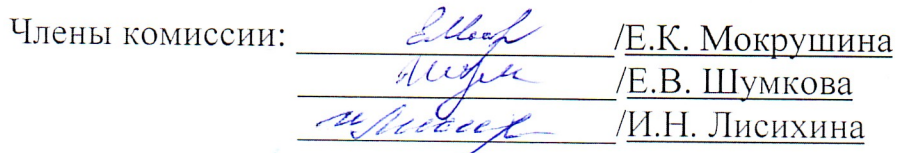 Члены комиссии: /Е.К. Мокрушина
/Е.В. Шумкова
/И.Н. Лисихина